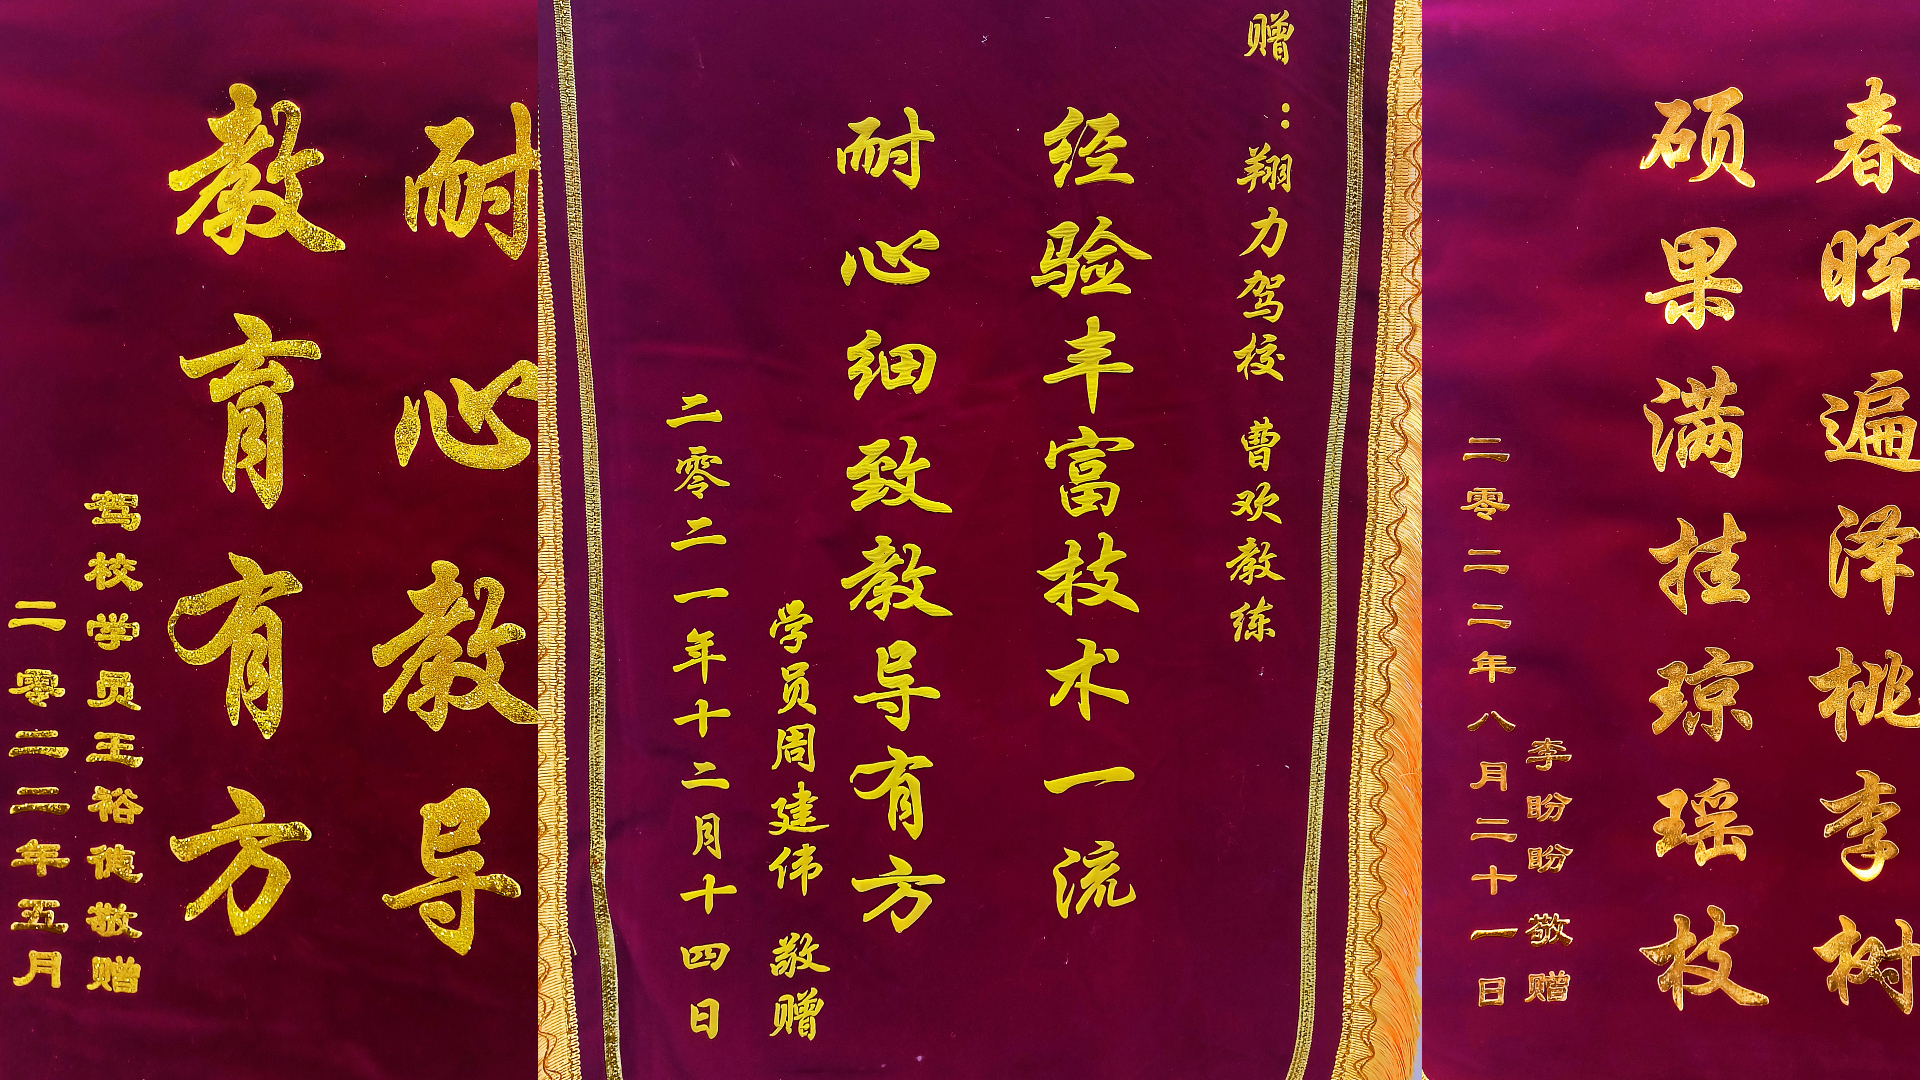 耐心教导
教育有方
驾校学员王裕德敬赠
二零二二年五月
赠：翔力驾校 曹欢教练
经验丰富技术一流
耐心细致教导有方
学员周建伟 敬赠
二零二一年十二月十四日
春晖遍泽桃李树
硕果满挂琼瑶枝
李盼盼 敬赠
二零二二年八月二十一日